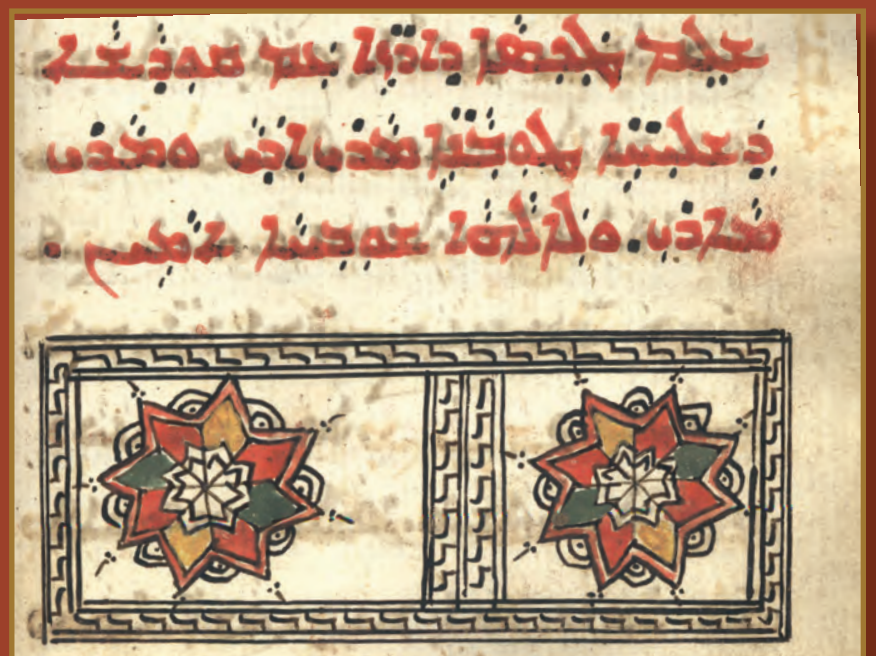 ܫܠܡ ܛܟܣܐ ܕܐܪ̈ܙܐ ܥܡ ܩܘܕܫܐ
ܕܫܠܝܚ̈ܐ ܛܘܒܢ̈ܐ ܡܪܝ ܐܕܝ ܘܡܪܝ
ܡܐܪܝ. ܘܠܐܠܗܐ ܫܘܒܚܐ ܐܡܝܢ.